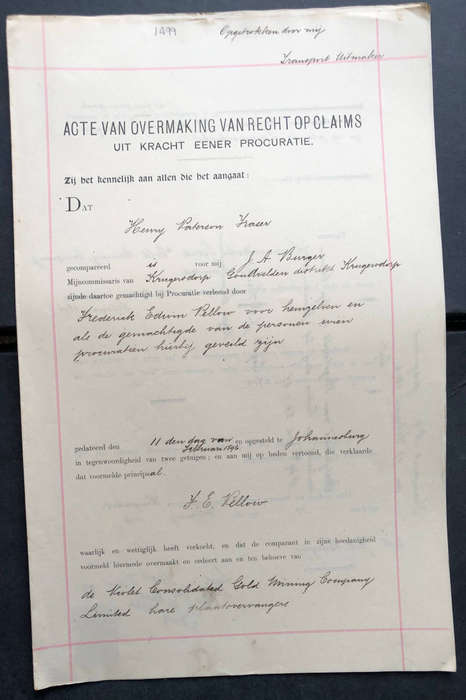 1499
Opgetrokken door my
Transport Uitmaker
ACTE VAN OVERMAKING VAN RECHT OP CLAIMS
UIT KRACHT EENER PROCURATIE.
Zij het kennelijk aan allen die het aangaat:
DAT
Henry Paterson Fraser
gecompareerd is voor mij J. A. Burger
Mijncommissaris van Krugersdorp Goudvelden district Krugersdorp
zijnde daartoe gemachtigd bij Procuratie verleend door
Frederick Edwin Vellow voor hemzelven en
als de gemachtigde van de personen wien
procuratien hierbij gevoeld zijn
gedateerd den 11 den dag van Februari 1896 en opgesteld te Johannesburg
in tegenwoordigheid van twee getuigen; en aan mij op heden vertoond, die verklaarde
dat voormelde principaal.
F. E. Vellow
waarlijk en wettiglijk heeft verkocht, en dat de comparant in zijne hoedanigheid
voormeld hiermede overmaakt en cedeert aan en ten behoeve van
de Violet Consolidated Gold Mining Company
Limited hare plaatsvervangers